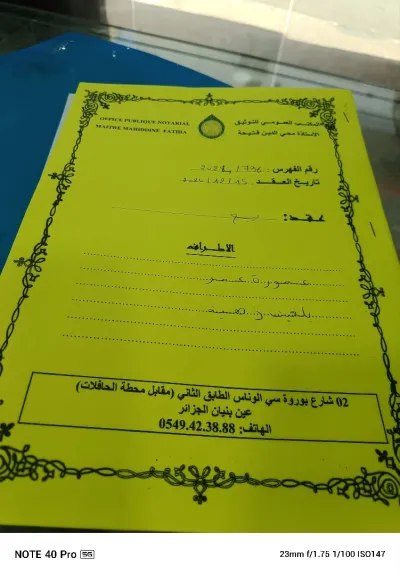 OFFICE PUBLIQUE NOTARIAL
MAITRE MAHIDDINE FATIHA
المكتب العمومي للتوثيق
الاستاذة محي الدين فتيحة
رقم الفهرس :
تاريخ العقد : 15/12/
عقد: بيع
الأطراف
عمورة عمر
02 شارع بوروة سي الوناس الطابق الثاني (مقابل محطة الحافلات)
عين بنيان الجزائر
الهاتف: 0549.42.38.88
NOTE 40 Pro 5G
23mm f/1.75 1/100 ISO147